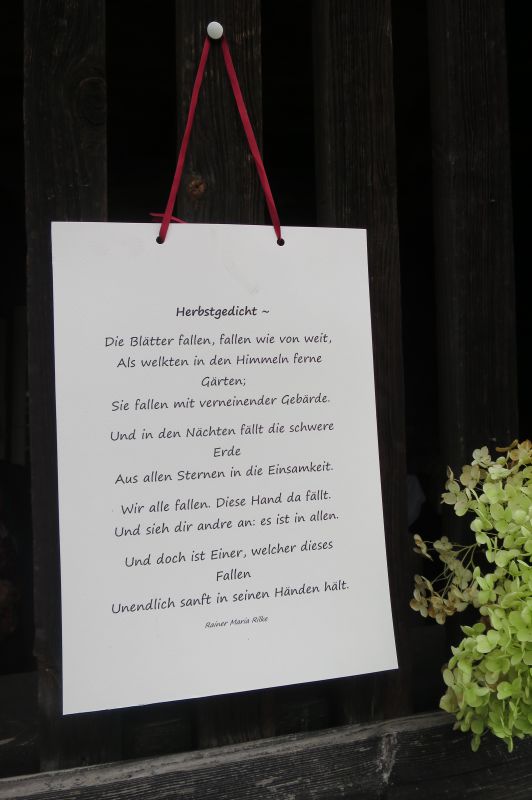 Herbstgedicht ~
Die Blätter fallen, fallen wie von weit,
Als welkten in den Himmeln ferne
Gärten;
Sie fallen mit verneinender Gebärde.
Und in den Nächten fällt die schwere
Erde
Aus allen Sternen in die Einsamkeit.
Wir alle fallen. Diese Hand da fällt.
Und sieh dir andre an: es ist in allen.
Und doch ist Einer, welcher dieses
Fallen
Unendlich sanft in seinen Händen hält.
Rainer Maria Rilke